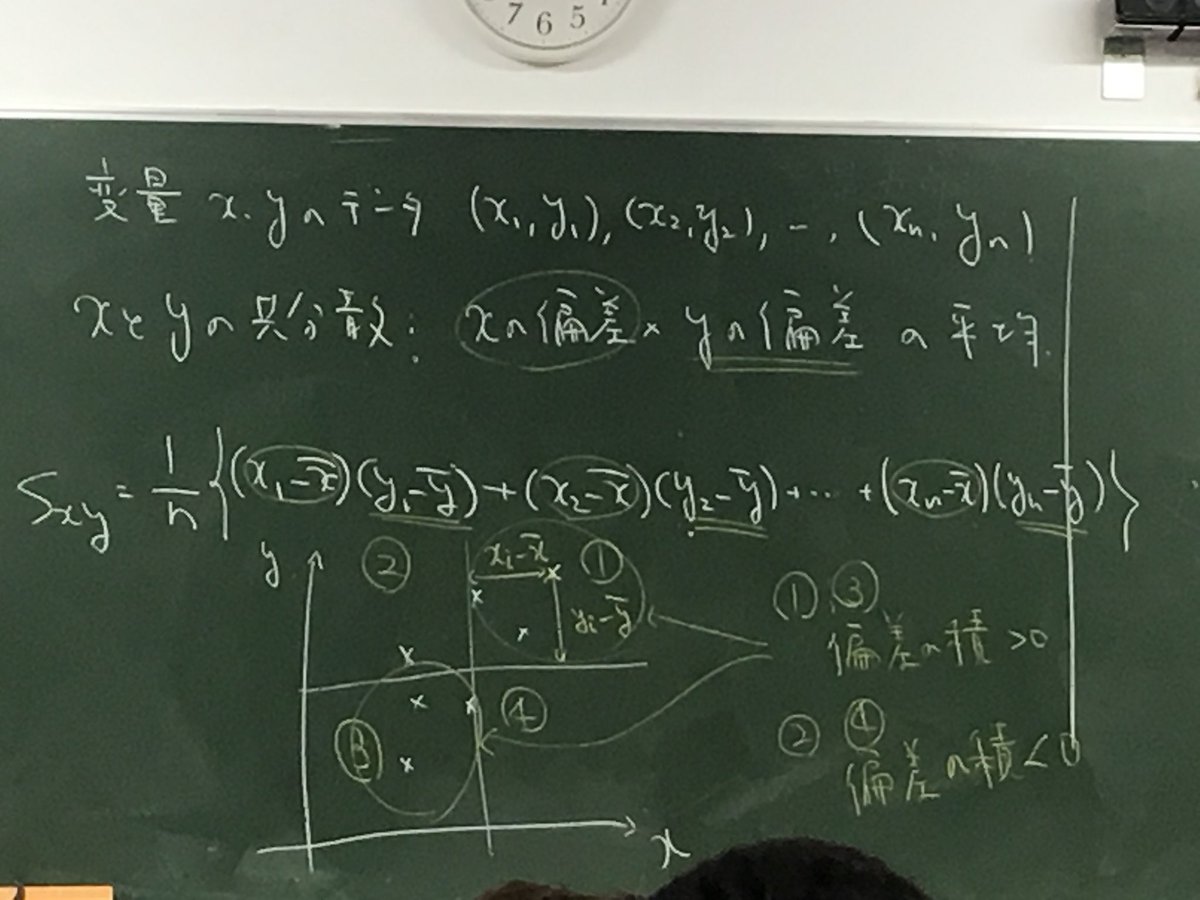 7 6 5
変量 x, yのデータ (x₁, y₁), (x₂, y₂), …, (xₙ, yₙ)
xとyの共分散: xの偏差 × yの偏差 の平均.
Sxy = 1/n {(x₁-x̄)(y₁-ȳ)+(x₂-x̄)(y₂-ȳ)+…+(xₙ-x̄)(yₙ-ȳ)}
y ② xᵢ-x̄ ①
yᵢ-ȳ
③ ④
x
① ③
偏差の積 >0
② ④
偏差の積 <0